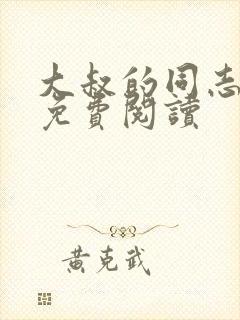 大叔的同志
免費閱讀
黃克武